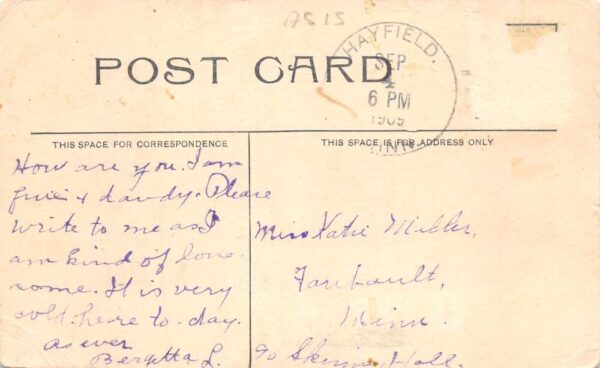 A515
HAYFIELD.
SEP
6 PM
1909
MINN.
POST CARD
THIS SPACE FOR CORRESPONDENCE
THIS SPACE IS FOR ADDRESS ONLY
How are you. I am
fine & dandy. Please
write to me as I
am kind of lone
some. It is very
cold here to-day.
as ever
Bergetta L.
Miss Katie Miller,
Faribault,
Minn.
c/o Skinner Hall.